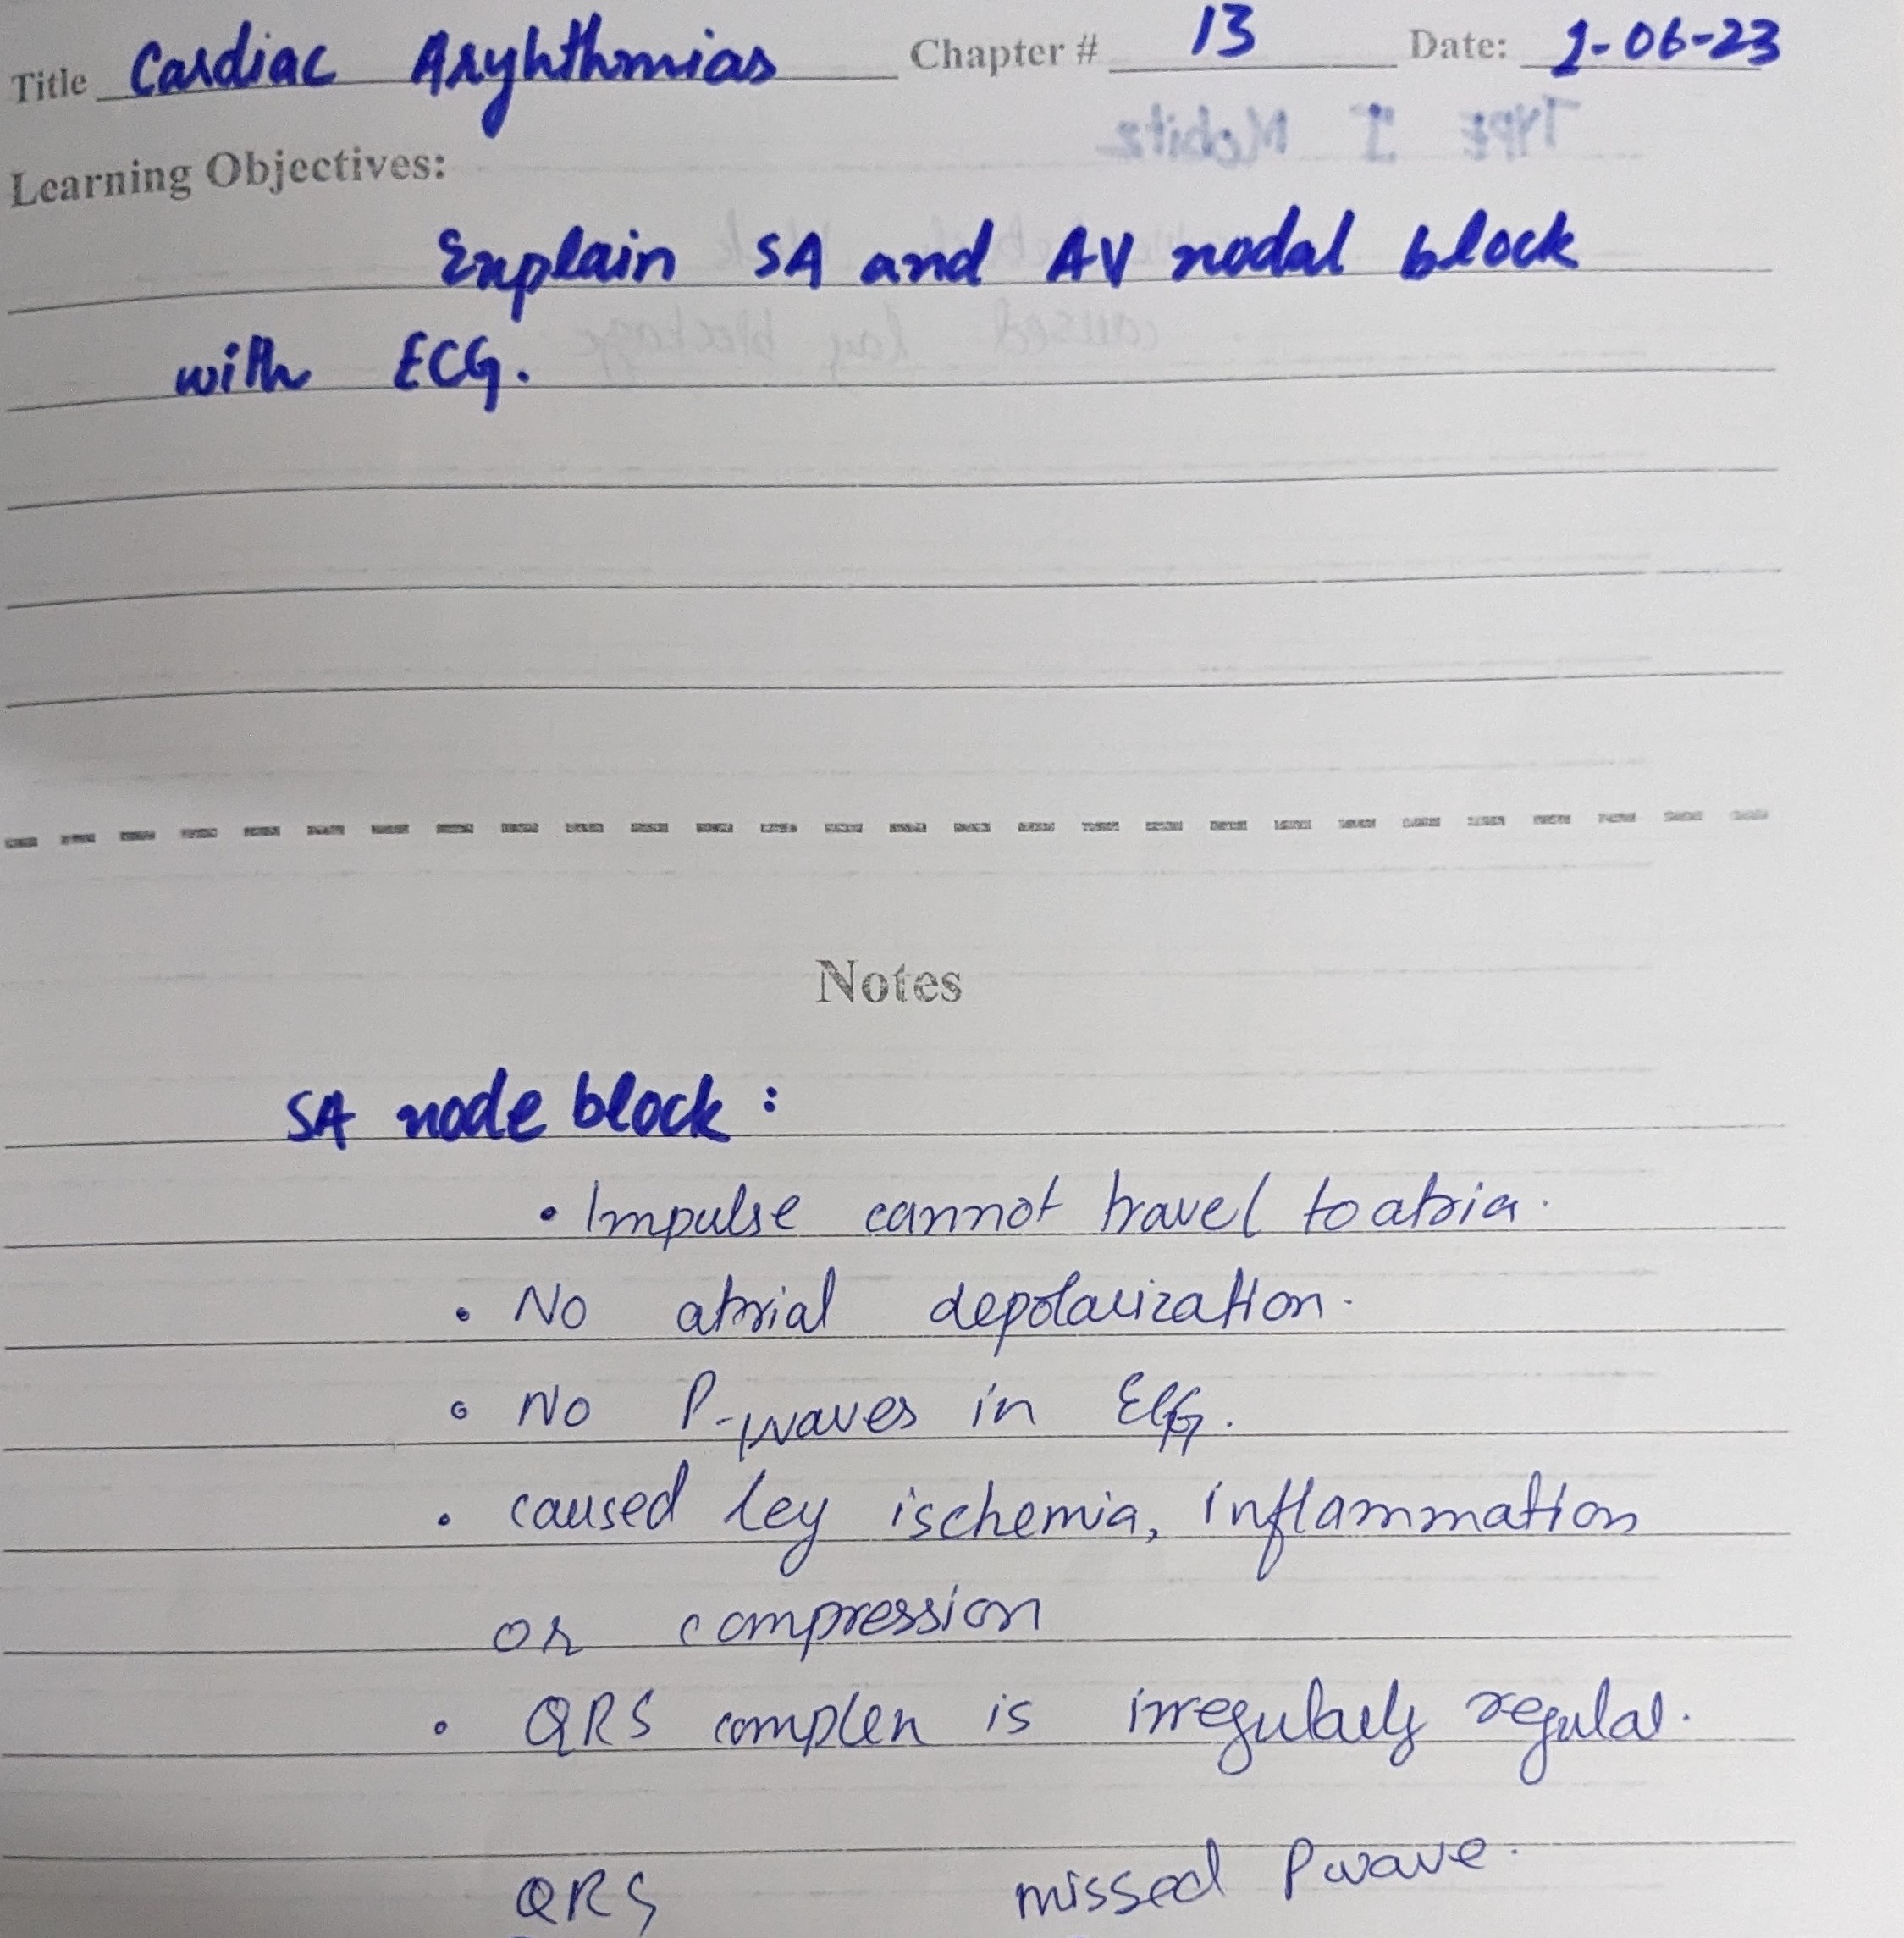 Title Cardiac Aryhthmias Chapter # 13 Date: 2-06-23
Learning Objectives:
Explain SA and AV nodal block
with ECG.
Notes
SA node block :
• Impulse cannot travel to atria.
• No atrial depolarization.
• No P-waves in ECG.
• caused by ischemia, inflammation
or compression
• QRS complex is irregularly regular.
QRS missed P wave.